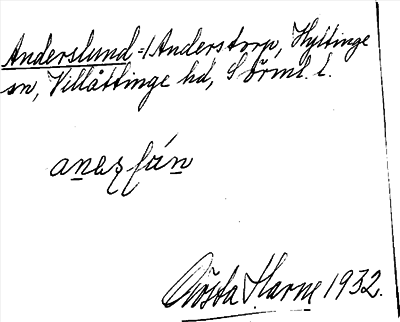 Anderslund =/Anderstorp, Hyltinge
sn, Villåttinge hd, Sörml. l.
Gösta Harne 1932.